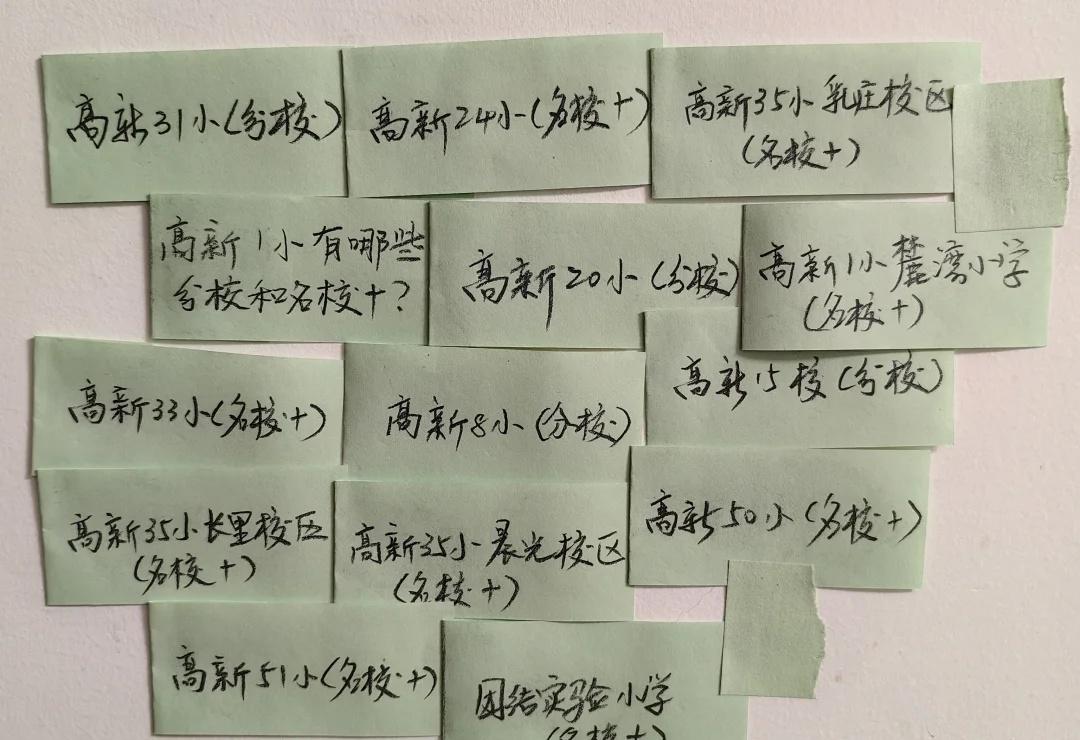 高新31小(分校)
高新24小(名校+)
高新35小乳庄校区
(名校+)
高新1小有哪些
分校和名校+?
高新20小(分校)
高新1小麓湾小学
(名校+)
高新33小(名校+)
高新8小(分校)
高新15校(分校)
高新35小长里校区
(名校+)
高新35小晨光校区
(名校+)
高新50小(名校+)
高新51小(名校+)
团结实验小学
(名校+)